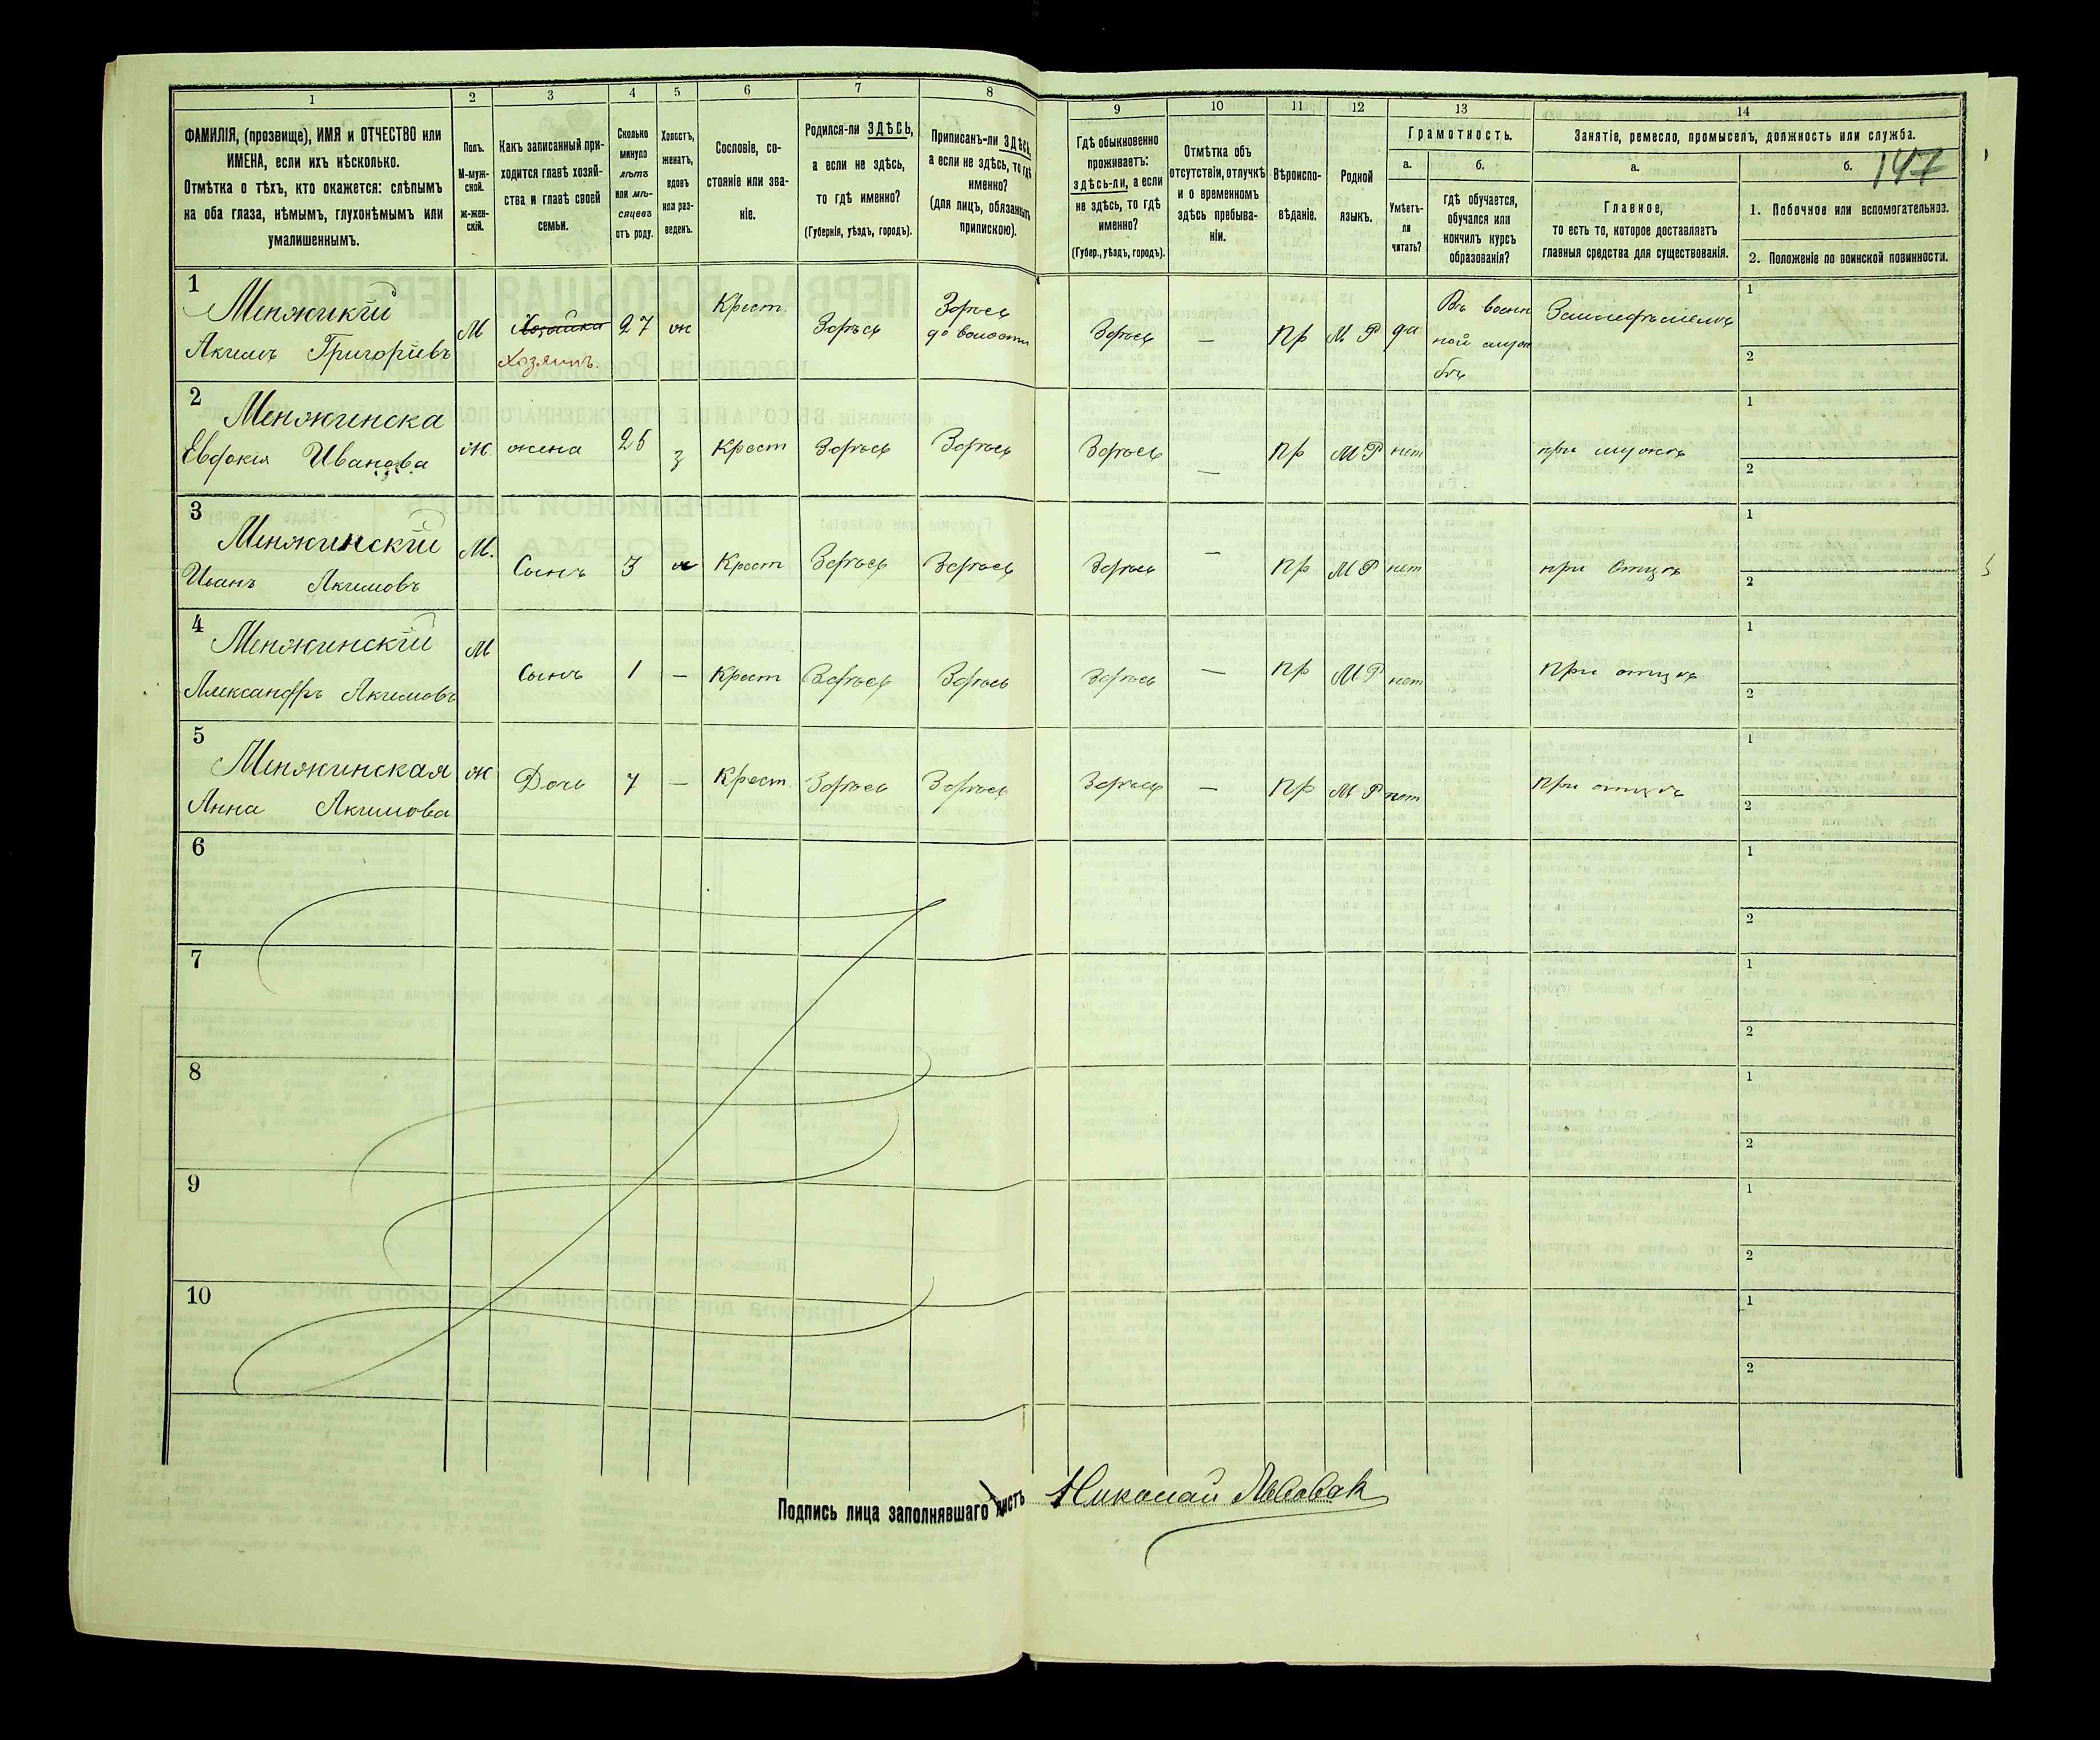 1 2 3 4 5 6 7 8 9 10 11 12 13 14
147
ФАМИЛІЯ, (прозвище), ИМЯ и ОТЧЕСТВО или
ИМЕНА, если ихъ нѣсколько.
Отмѣтка о тѣхъ, кто окажется: слѣпымъ
на оба глаза, нѣмымъ, глухонѣмымъ или
умалишеннымъ.
Полъ.
М-муж-
ской.
ж-жен-
скій.
Какъ записанный при-
ходится главѣ хозяй-
ства и главѣ своей
семьи.
Сколько
минуло
лѣтъ
или мѣ-
сяцевъ
отъ роду.
Холостъ,
женатъ,
вдовъ
или раз-
веденъ.
Сословіе, со-
стояніе или зва-
ніе.
Родился-ли ЗДѢСЬ,
а если не здѣсь,
то гдѣ именно?
(Губернія, уѣздъ, городъ).
Приписанъ-ли ЗДѢСЬ,
а если не здѣсь, то гдѣ
именно?
(для лицъ, обязанныхъ
припискою).
Гдѣ обыкновенно
проживаетъ:
здѣсь-ли, а если
не здѣсь, то гдѣ
именно?
(Губер., уѣздъ, городъ).
Отмѣтка объ
отсутствіи, отлучкѣ
и о временномъ
здѣсь пребыва-
ніи.
Вѣроиспо-
вѣданіе.
Родной
языкъ.
Грамотность.
а.
Умѣетъ-
ли
читать?
б.
гдѣ обучается,
обучался или
кончилъ курсъ
образованія?
Занятіе, ремесло, промыселъ, должность или служба.
а.
Главное,
то есть то, которое доставляетъ
главныя средства для существованія.
б.
1. Побочное или вспомогательное.
2. Положеніе по воинской повинности.
1
Менжикій
Акимъ Григоріевъ
М
Хозяйка
Хозяинъ.
27
ж
Крест.
Здѣсь
Здѣсь
до волости
Здѣсь
—
Пр
М Р
да
Въ воен
ной служ
бѣ
Земледѣліемъ
1
2
2
Менжинска
Евдокія Иванова
Ж
жена
25
з
Крест
Здѣсь
Здѣсь
Здѣсь
—
Пр
М Р
нет
при мужѣ
1
2
3
Менжинскій
Иванъ Акимовъ
М.
Сынъ
3
Крест
Здѣсь
Здѣсь
Здѣсь
—
Пр
М Р
нет
при Отцѣ
1
2
4
Менжинскій
Александръ Акимовъ
М
Сынъ
1
—
Крест
Здѣсь
Здѣсь
Здѣсь
—
Пр
М Р
нет
При отцѣ
1
2
5
Менжинская
Анна Акимова
ж
Дочь
7
—
Крест.
Здѣсь
Здѣсь
Здѣсь
—
Пр
М Р
нет
При отцѣ
1
2
6
1
2
7
1
2
8
1
2
9
1
2
10
1
2
Подпись лица заполнявшаго листъ Николай